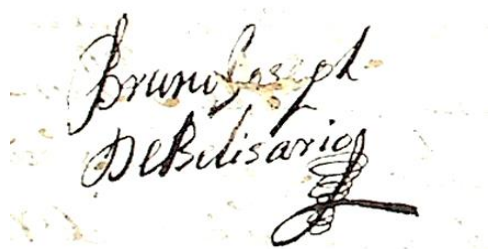 Bruno Joseph
De Belisario